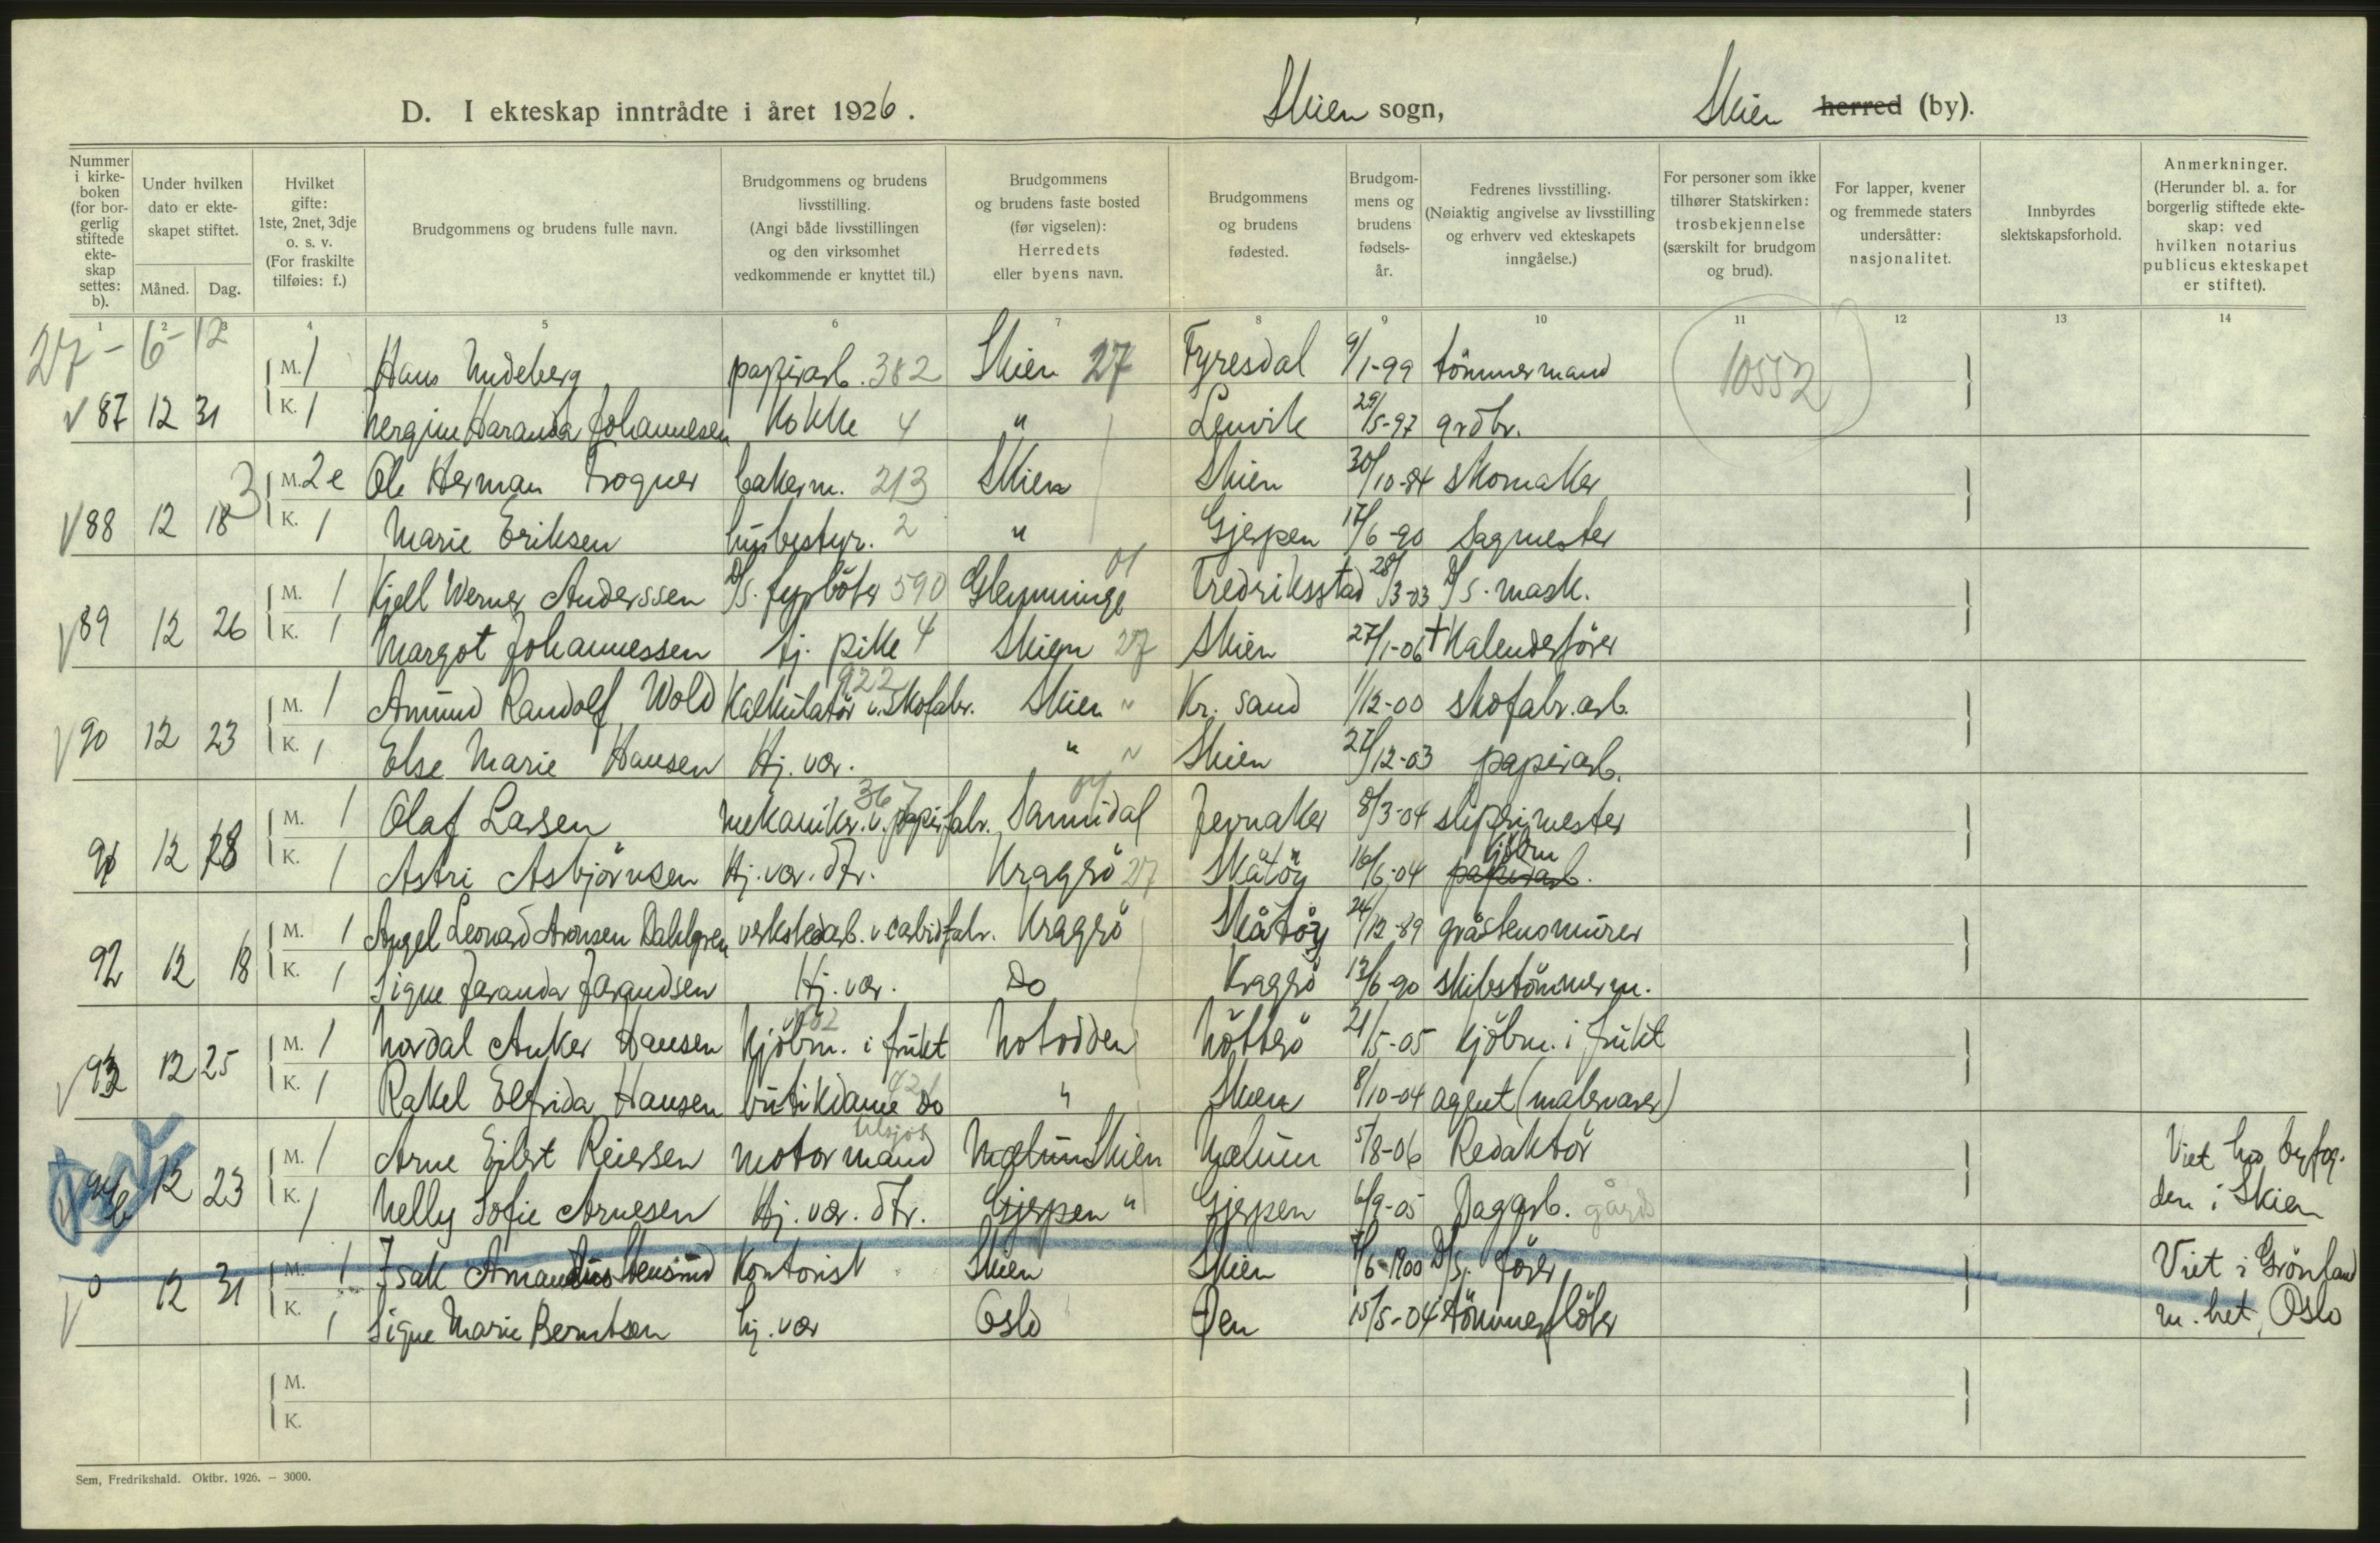 D. I ekteskap inntrådte i året 1926. Skien sogn, Skien herred (by).
Nummer i kirkeboken (for borgerlig stiftede ekteskap settes: b).
Under hvilken dato er ekteskapet stiftet.
Måned. Dag.
Hvilket gifte: 1ste, 2net, 3dje o. s. v. (For fraskilte tilføies: f.)
Brudgommens og brudens fulle navn.
Brudgommens og brudens livsstilling. (Angi både livsstillingen og den virksomhet vedkommende er knyttet til.)
Brudgommens og brudens faste bosted (før vigselen): Herredets eller byens navn.
Brudgommens og brudens fødested.
Brudgommens og brudens fødselsår.
Fedrenes livsstilling. (Nøiaktig angivelse av livsstilling og erhverv ved ekteskapets inngåelse.)
For personer som ikke tilhører Statskirken: trosbekjennelse (særskilt for brudgom og brud).
For lapper, kvener og fremmede staters undersåtter: nasjonalitet.
Innbyrdes slektskapsforhold.
Anmerkninger. (Herunder bl. a. for borgerlig stiftede ekteskap: ved hvilken notarius publicus ekteskapet er stiftet).
1 2 3 4 5 6 7 8 9 10 11 12 13 14
27 - 6 - 12
M. 1 Hans papirarb. 382 Skien 27 Fyresdal 9/1-99 tömmermand 10552
87 12 31 K. 1 Johannesen Kokke 4 " Lenvik 29/5-97 grdbr.
M. 2e Ole Herman Trogner bakerm. 213 Skien Skien 30/10-84 skomaker
88 12 18 K. 1 Marie Eriksen husbestyr. 2 " Gjerpen 17/6-90 Sagmester
M. 1 Kjell Werner Anderssen D/S. fyrböter 590 Glemminge 01 Fredriksstad 28/3-03 D/S. mask.
89 12 26 K. 1 Margot Johannessen tj. pike 4 Skien 27 Skien 27/1-06 + Kalenderförer
M. 1 Amund Randolf Wold Kalkulatör v. Skofabr. 922 Skien " Kr. sand 1/12-00 skofabr. arb.
90 12 23 K. 1 Else Marie Hansen Hj. vær. " " Skien 27/12-03 papirarb.
M. 1 Olaf Larsen mekanikr. v. papirfabr. 367 Sannidal 04 Jevnaker 8/3-04 sliperimester
91 12 28 K. 1 Astri Asbjörnsen Hj. vær. dtr. Kragerö 27 Skåtöy 16/6-04 papirarb. kjöbm
M. 1 Angel Leonard Aronsen Dahlgren verkstedarb. v carbidfabr. Kragerö Skåtöy 24/12-89 gråstensmurer
92 12 18 K. 1 Signe Jaranda Jarandsen Hj. vær. Do Kragerö 13/6-90 skibstömmerm.
M. 1 Nordal Anker Hansen Kjöbm. i frukt Notodden Nötterö 21/5-05 Kjöbm. i frukt
93 12 25 K. 1 Rakel Elfrida Hansen butikdame do " Skien 8/10-04 agent (malervarer)
M. 1 Arne Eilert Reiersen motormand Mælum Skien Mælum 5/8-06 Redaktör Viet hos byfog-
94 b 12 23 K. 1 Nelly Sofie Arnesen Hj. vær. dtr. Gjerpen " Gjerpen 6/9-05 Dagarb. gårds den i Skien
M. 1 Isak Amandus Stensrud Kontorist Skien Skien 7/6-1900 D/S. förer Viet i Grönland
0 12 31 K. 1 Signe Marie Berntsen hj. vær Oslo Øen 15/5-04 tömmerflöter m. het, Oslo
M.
K.
Sem, Fredrikshald. Oktbr. 1926. – 3000.